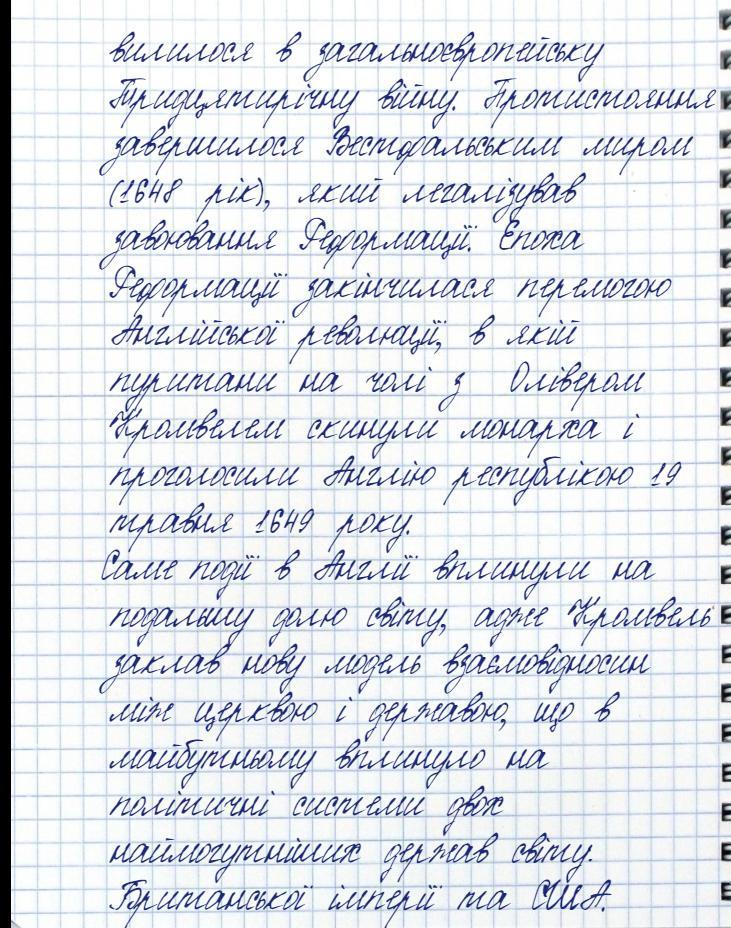 вилилося в загальноєвропейську
Тридцятирічну війну. Протистояння
завершилося Вестфальським миром
(1648 рік), який легалізував
завоювання Реформації. Епоха
Реформації закінчилася перемогою
Англійської революції, в якій
пуритани на чолі з Олівером
Кромвелем скинули монарха і
проголосили Англію республікою 19
травня 1649 року.
Саме події в Англії вплинули на
подальшу долю світу, адже Кромвель
заклав нову модель взаємовідносин
між церквою і державою, що в
майбутньому вплинуло на
політичні системи двох
наймогутніших держав світу.
Британської імперії та США.